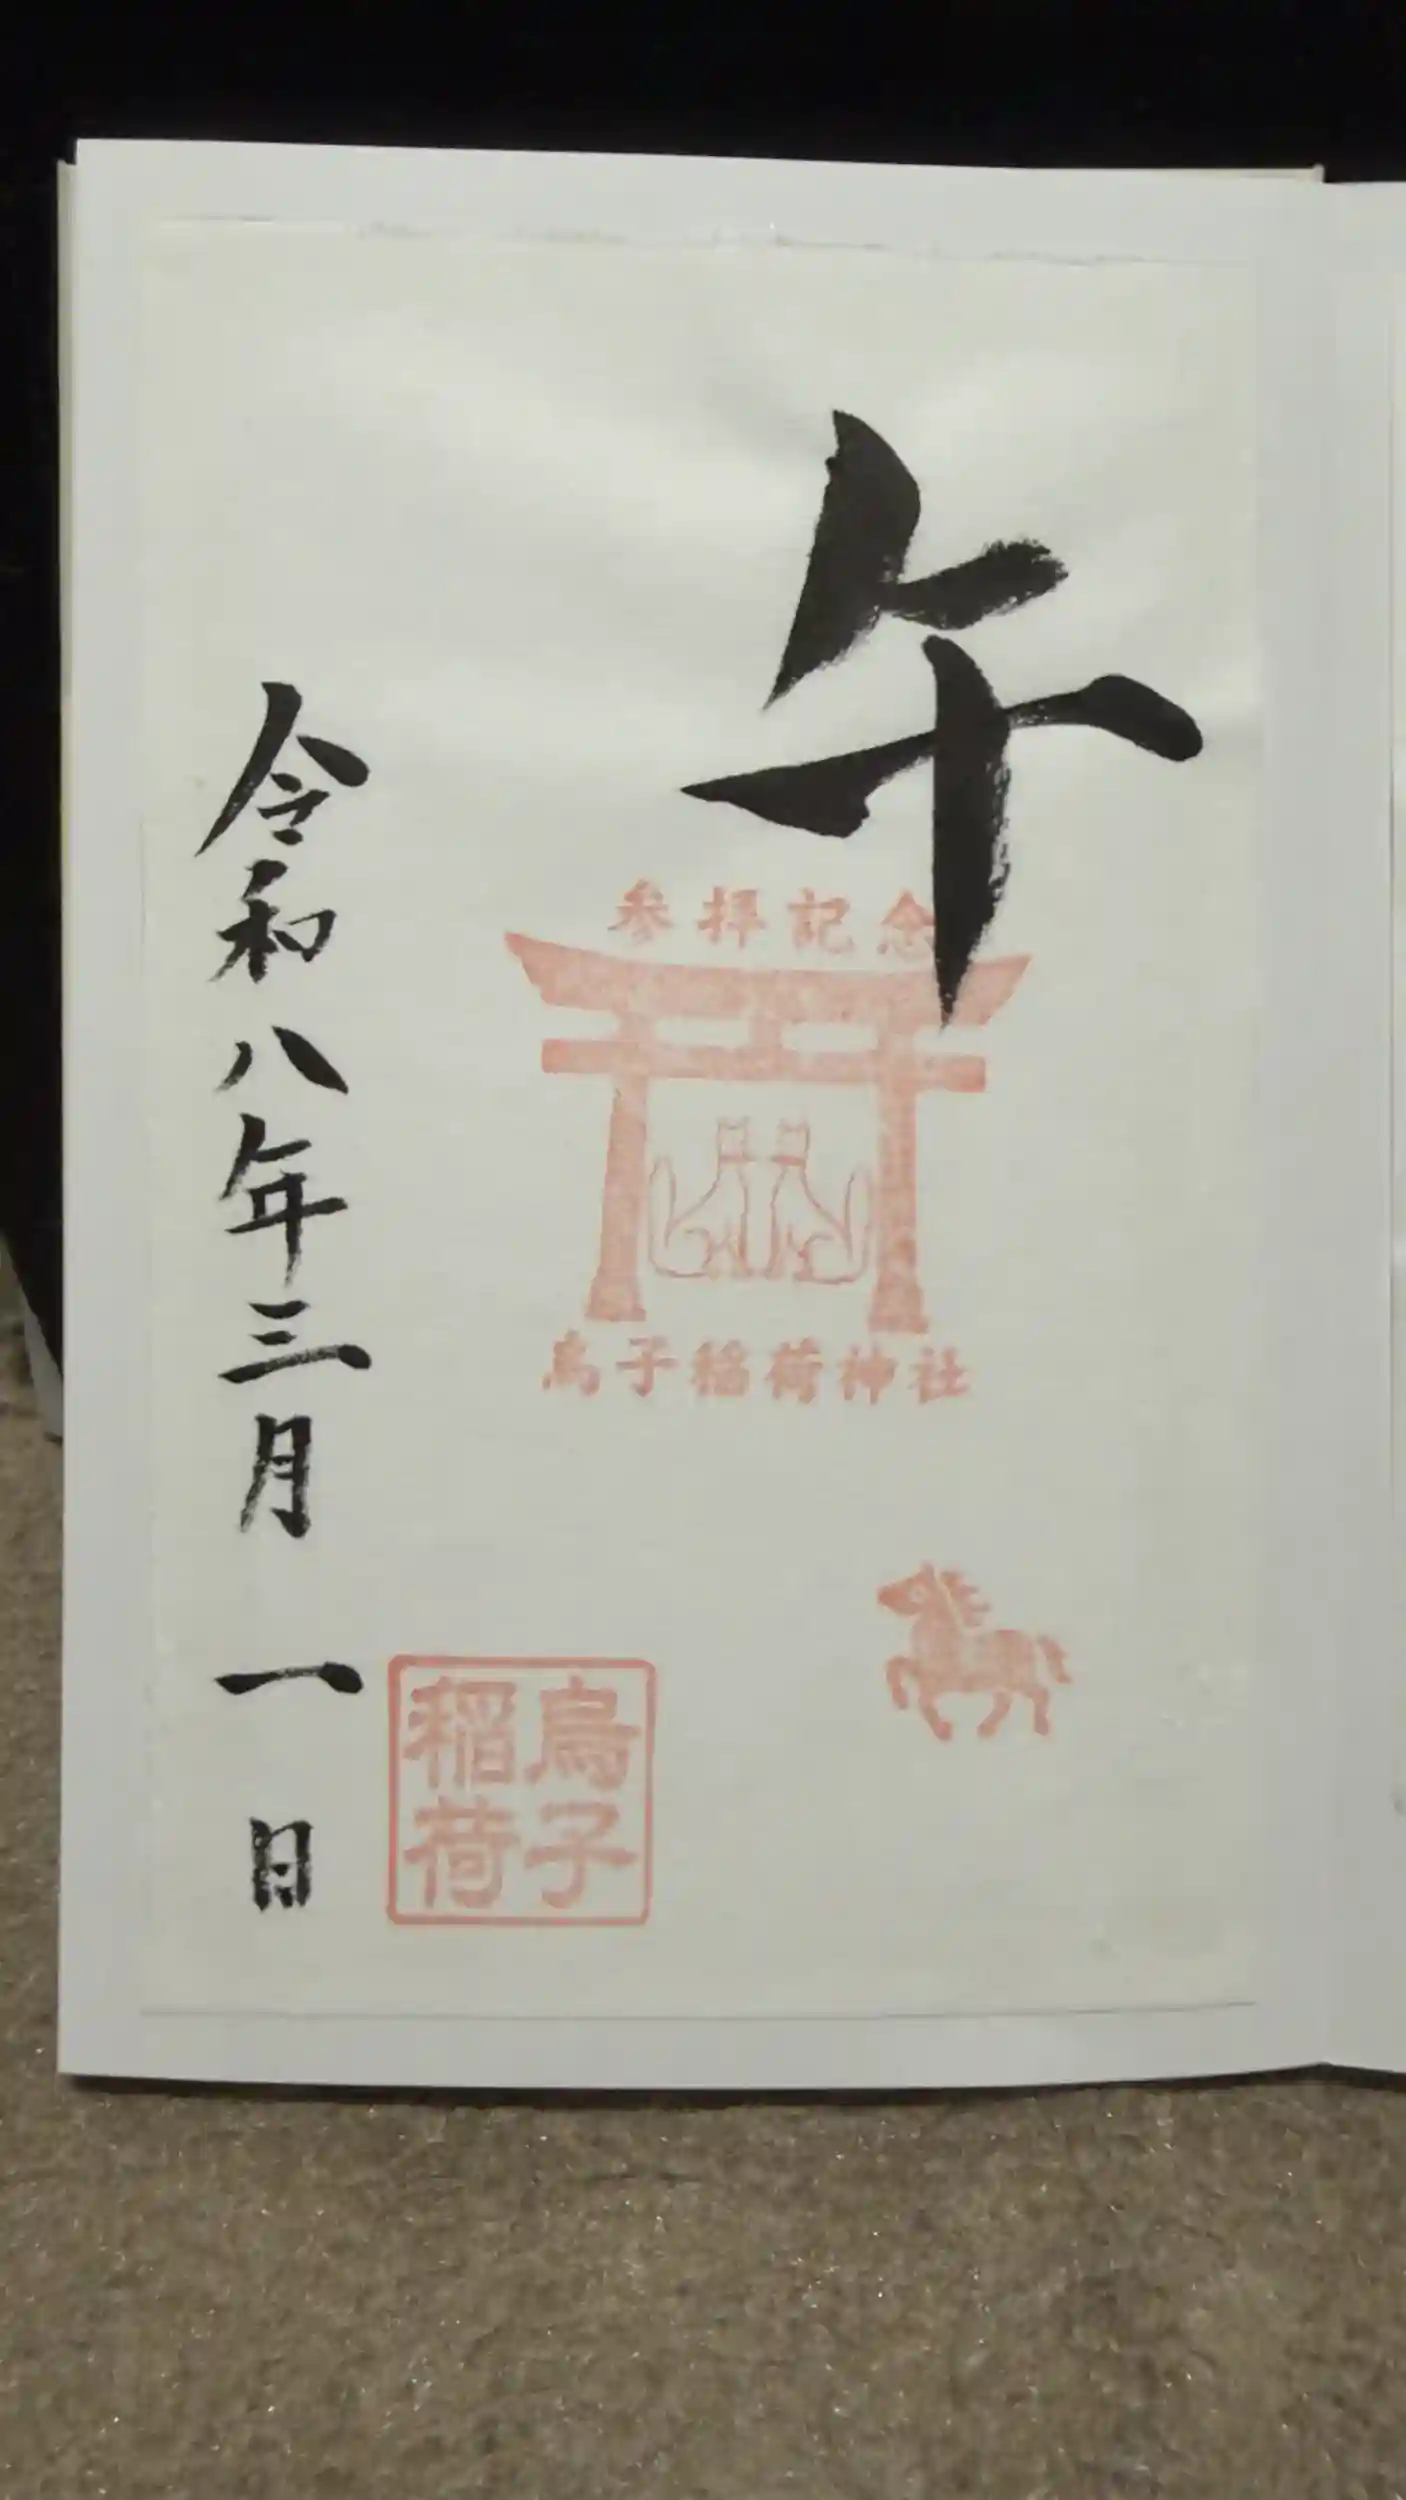 午
参拝記念
烏子稲荷神社
烏子
稲荷
令和八年三月一日